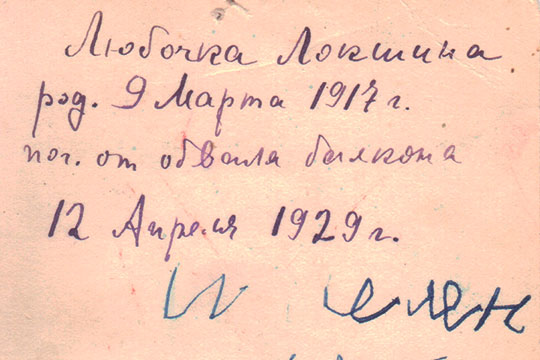 Любочка Локшина
род. 9 Марта 1917 г.
пог. от обвала балкона
12 Апреля 1929 г.